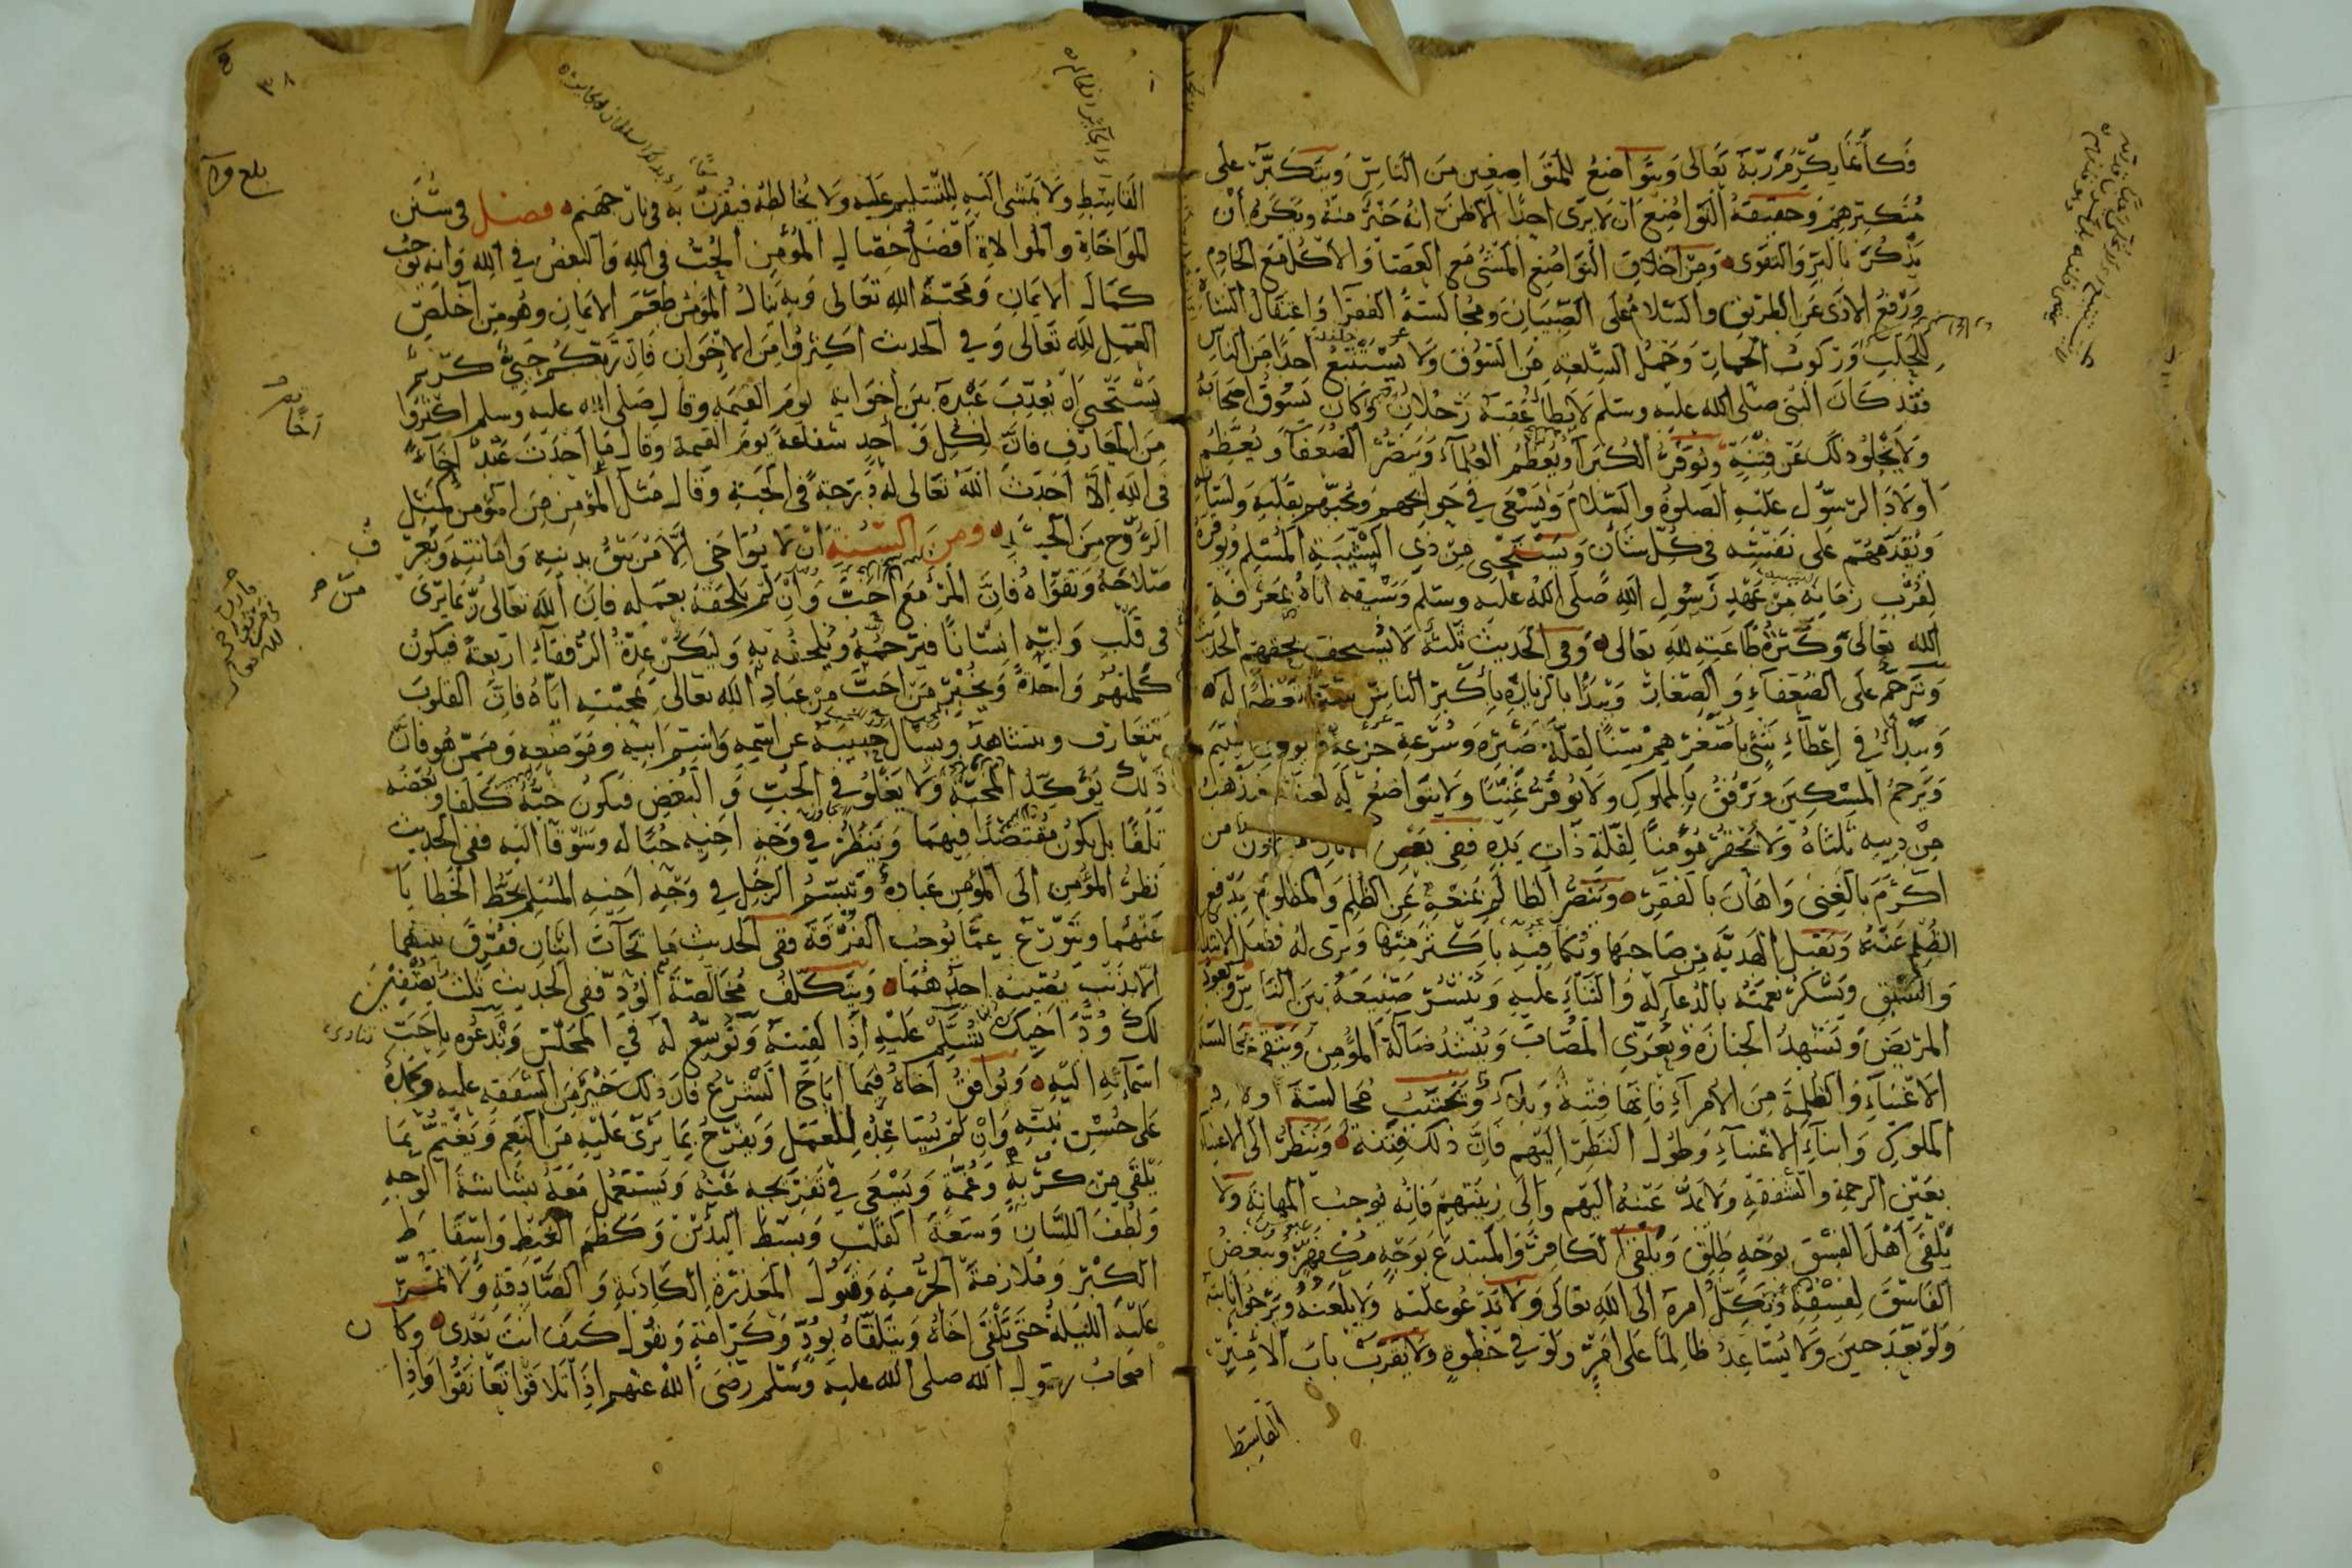 فكأنما يكرم ربه تعالى ويتواضع للمتواضعين من الناس ويتكبر على
متكبرهم وحقيقة التواضع ان لا يرى احدا الا ظن انه خير منه ويكره ان
يذكر بالبر والتقوى ومن اخلاق التواضع المشى مع العصا والاكل مع الخادم
ورفع الاذى عن الطريق والسلام على الصبيان ومجالسة الفقرا واعتقال الشاة
للحلب وركوب الحمار وحمل السلعة من السوق ولا يستتبع احدا من الناس
فقد كان النبى صلى الله عليه وسلم لا يطأ عقبه رجلان وكان يسوق اصحابه
ولا يخلو ذلك عن فتنة ويوقر الكبرآ ويعظم العلمآء وينصر الضعفآ ويعظم
اولاد الرسول عليه الصلوة والسلام ويسعى في حوائجهم ويحبهم بقلبه ولسانه
ويقدمهم على نفسه في كل شان ويستحيى من ذي الشيبة المسلم ويوقره
لقرب زمانه من عهد رسول الله صلى الله عليه وسلم وسبقه اياه بمعرفة
الله تعالى وكثرة طاعته لله تعالى وفي الحديث ثلثة لا يستخف بحقهم الحديث
وترحم على الضعفآء والصغار ويبدأ بالزيارة باكبر الناس تعظيما له
ويبدأ في اعطآء شئ باصغرهم سنا لقلة صبره وسرعة جزعه
ويرحم المسكين ويرفق بالمملوك ولا يوقر غنيا ولا يتواضع له لغناه فيذهب
من دينه ثلثاه ولا يحقر مؤمنا لقلة ذات يده ففي بعض من
اكرم بالغنى واهان بالفقر وينصر الظالم بمنعه عن الظلم والمظلوم بدفع
الظلم عنه ويقبل الهدية من صاحبها ويكافيه باكثر منها ويرى له فضل الابتدا
والسبق ويشكر نعمته بالدعآ له والثنآء عليه وينشر صنيعه بين الناس ويعود
المريض ويشهد الجنازة ويعزى المصاب وينشد ضآلة المؤمن ويتقى مجالسة
الاغنيآء والظلمة من الامرآء فانها فتنة وبلآء ويجتنب مجالسة اولاد
الملوك وابنآء الاغنيآء وطول النظر اليهم فان ذلك فتنة وينظر الى الاغنيا
بعين الرحمة والشفقة ولا يمد عينه اليهم والى زينتهم فانه يوجب المهانة ولا
يلقى اهل الفسق بوجه طلق ويلقى الكافر والمبتدع بوجه مكفهر ويبغض
الفاسق لفسقه ويكل امره الى الله تعالى ولا يدعو عليه ولا يلعنه ويرجو انابته
ولو بعد حين ولا يساعد ظالما على امر ولو في خطوة ولا يقرب باب الامير
القاسط
٣٨
بلغ
القاسط ولا يمشى اليه للتسليم عليه ولا يخالطه فيقرن به في نار جهنم فصل في سنن
المواخاة والموالاة افضل خصال المؤمن الحب فى الله والبغض في الله وانه يوجب
كمال الايمان ومحبة الله تعالى وبه ينال المؤمن طعم الايمان وهو من اخلص
العمل لله تعالى وفي الحديث اكثروا من الاخوان فان ربكم حيى كريم
يستحيى ان يعذب عبده بين اخوانه يوم القيمة وقال صلى الله عليه وسلم اكثروا
من المعارف فان لكل واحد شفاعة يوم القيمة وقال ما احدث عبد اخآء
فى الله الا احدث الله تعالى له درجة في الجنة وقال مثل المؤمن من المؤمن كمثل
الروح من الجسد ومن السنة ان لا يواخى الا من يثق بدينه وامانته ويعرف
صلاحه وتقواه فان المرء مع من احب وان لم يلحقه بعمله فان الله تعالى ربما يرى
فى قلب وليه انسانا فيرحمه ويلحقه به وليكن عدة الرفقآء اربعة فيكون
كلمتهم واحدة ويخبر من احب من عباد الله تعالى بمحبته اياه فان القلوب
تتعارف وتتشاهد ويسال حبيبه عن اسمه واسم ابيه وموضعه وممن هو فان
ذلك يؤكد المحبة ولا يغلو في الحب والبغض فيكون حبه كلفا وبغضه
تلفا بل يكون مقتصدا فيهما وينظر في وجه اخيه حبا له وشوقا اليه ففي الحديث
نظر المؤمن الى المؤمن عبادة وتبسم الرجل في وجه اخيه المسلم يحط الخطايا
عنهما ويتورع عما يوجب الفرقة ففى الحديث ما تحآب اثنان ففرق بينهما
الا بذنب يصيبه احدهما ويتكلف مخالصة الود ففى الحديث ثلث يصفين
لك ود اخيك تسلم عليه اذا لقيته وتوسع له في المجلس وتدعوه باحب
اسمائه اليه ويوافق اخاه فيما اباح الشرع فان ذلك خير من الشفقة عليه ويحمده
على حسن نيته وان لم يساعده العمل ويفرح بما يرى عليه من النعم ويغتم بما
يلقى من كربة وغمة ويسعى في تفريجه عنه ويستعمل معه بشاشة الوجه
ولطف اللسان وسعة القلب وبسط اليدين وكظم الغيظ واسقاط
الكبر وملازمة الحرمة وقبول المعذرة الكاذبة والصادقة ولا تمر
عليه الليلة حتى يلقى اخاه ويتلقاه بود وكرامة ويقول كيف انت بعدى وكان
اصحاب رسول الله صلى الله عليه وسلم رضى الله عنهم اذا تلاقوا تعانقوا واذا